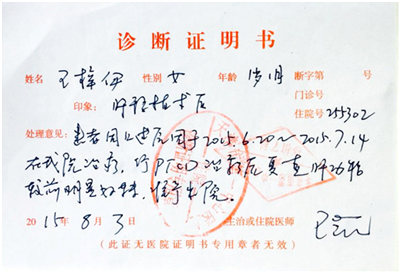 诊断证明书
姓名 王梓伊 性别 女 年龄 岁 月 断字第 号
门诊号
印象: 肝移植术后 住院号 255302
处理意见: 患者因上述原因于2015.6.20~2015.7.14
在我院治疗,行PTCD治疗后复查肝功能
较前明显好转,准予出院。
2015年8月3日 主治或住院医师
(此证无医院证明书专用章者无效)